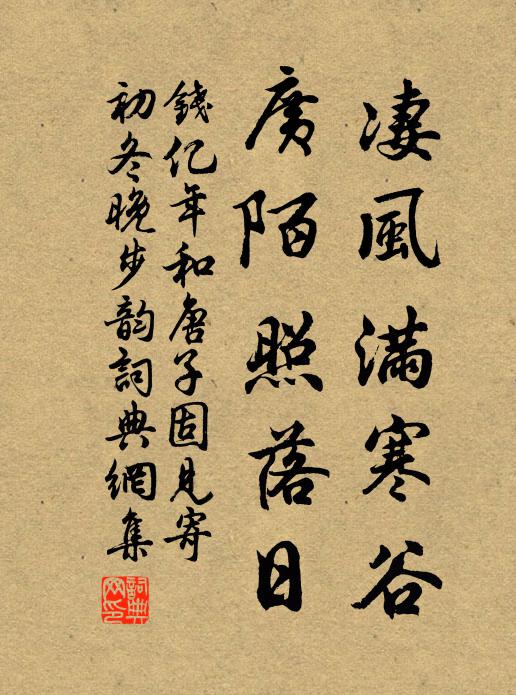 凄風滿寒谷
廣陌照落日
錢亿年和唐子固見寄
初冬晚步韵詞典網集
詞典網印